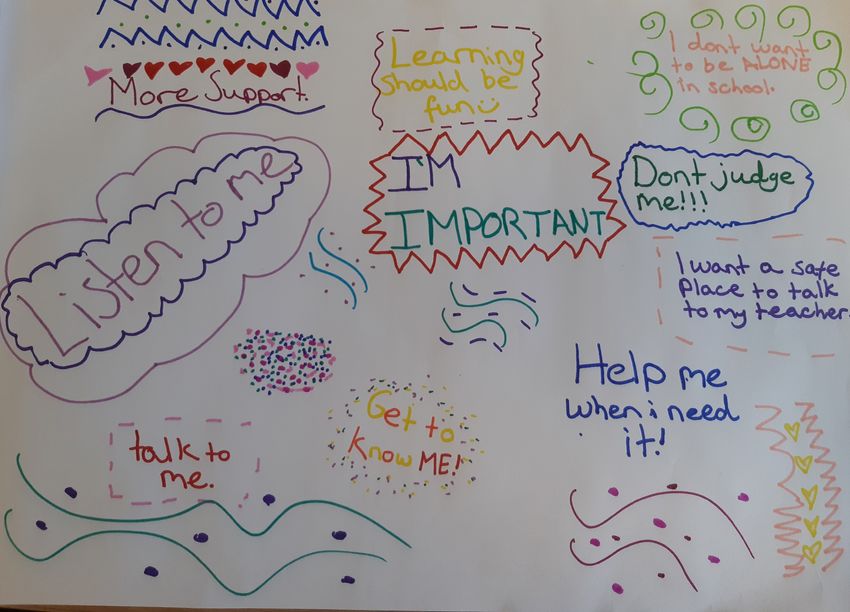 More Support.
Learning
should be
fun
I dont want
to be ALONE
in school.
Listen to me
IM
IMPORTANT
Dont judge
me!!!
I want a safe
Place to talk
to my teacher.
Help me
when i need
it!
Get to
know ME!
talk to
me.